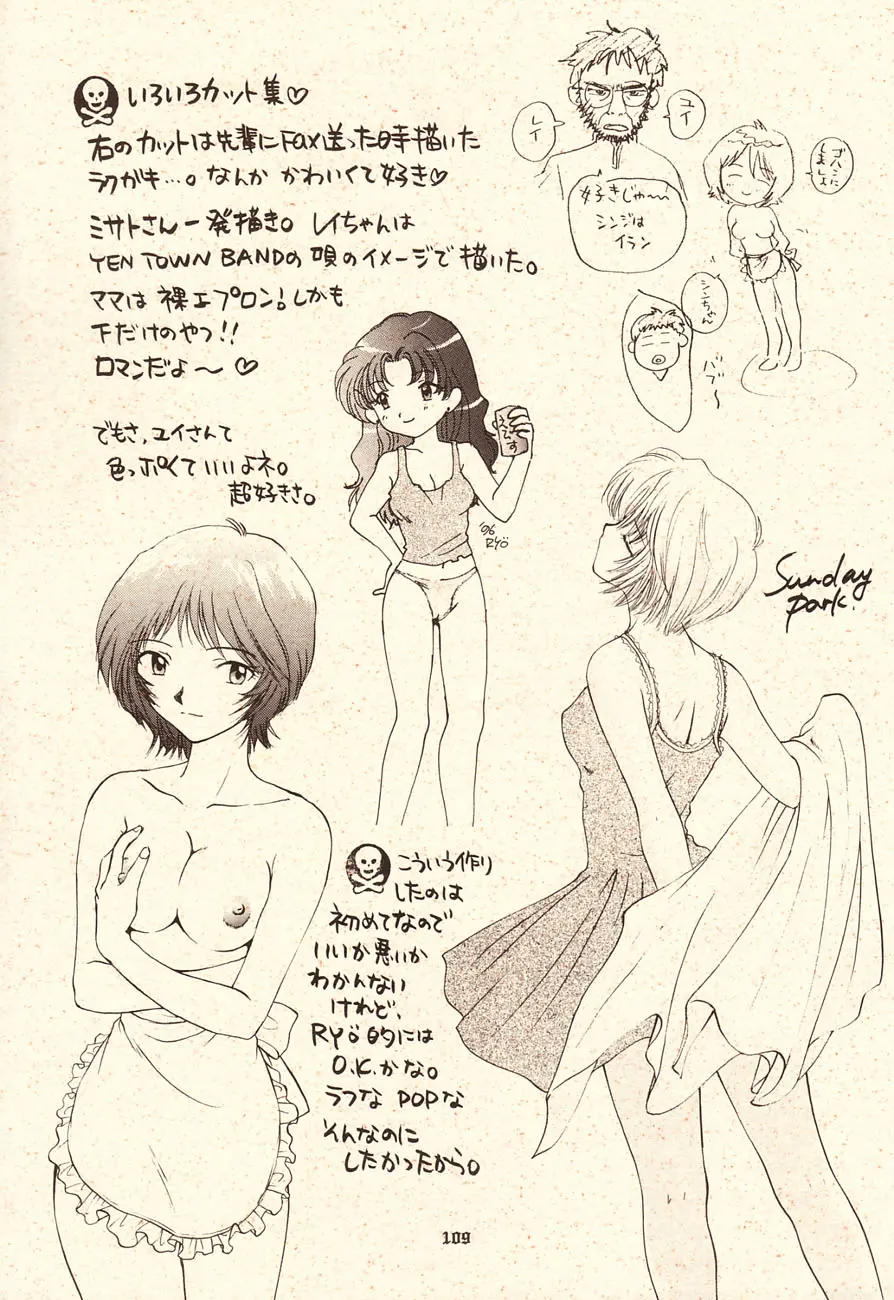 いろいろカット集♡
右のカットは先輩にFax送った時描いた
ラクガキ…。なんか かわいくて好き♡
ミサトさん一発描き。レイちゃんは
YEN TOWN BANDの唄のイメージで描いた。
ママは裸エプロン!しかも
下だけのやつ!!
ロマンだよ〜♡
でもさ,ユイさんて
色っぽくていいよネ。
超好きさ。
レイ
ユイ
好きじゃ〜
シンジは
イラン
ゴハンに
しましょ
シンちゃん
バブ〜
えびす
'96
RYö
Sunday
park.
こういう作り
したのは
初めてなので
いいか悪いか
わかんない
けれど、
RYö的には
O.K.かな。
ラフな POPな
そんなのに
したかったから。
109